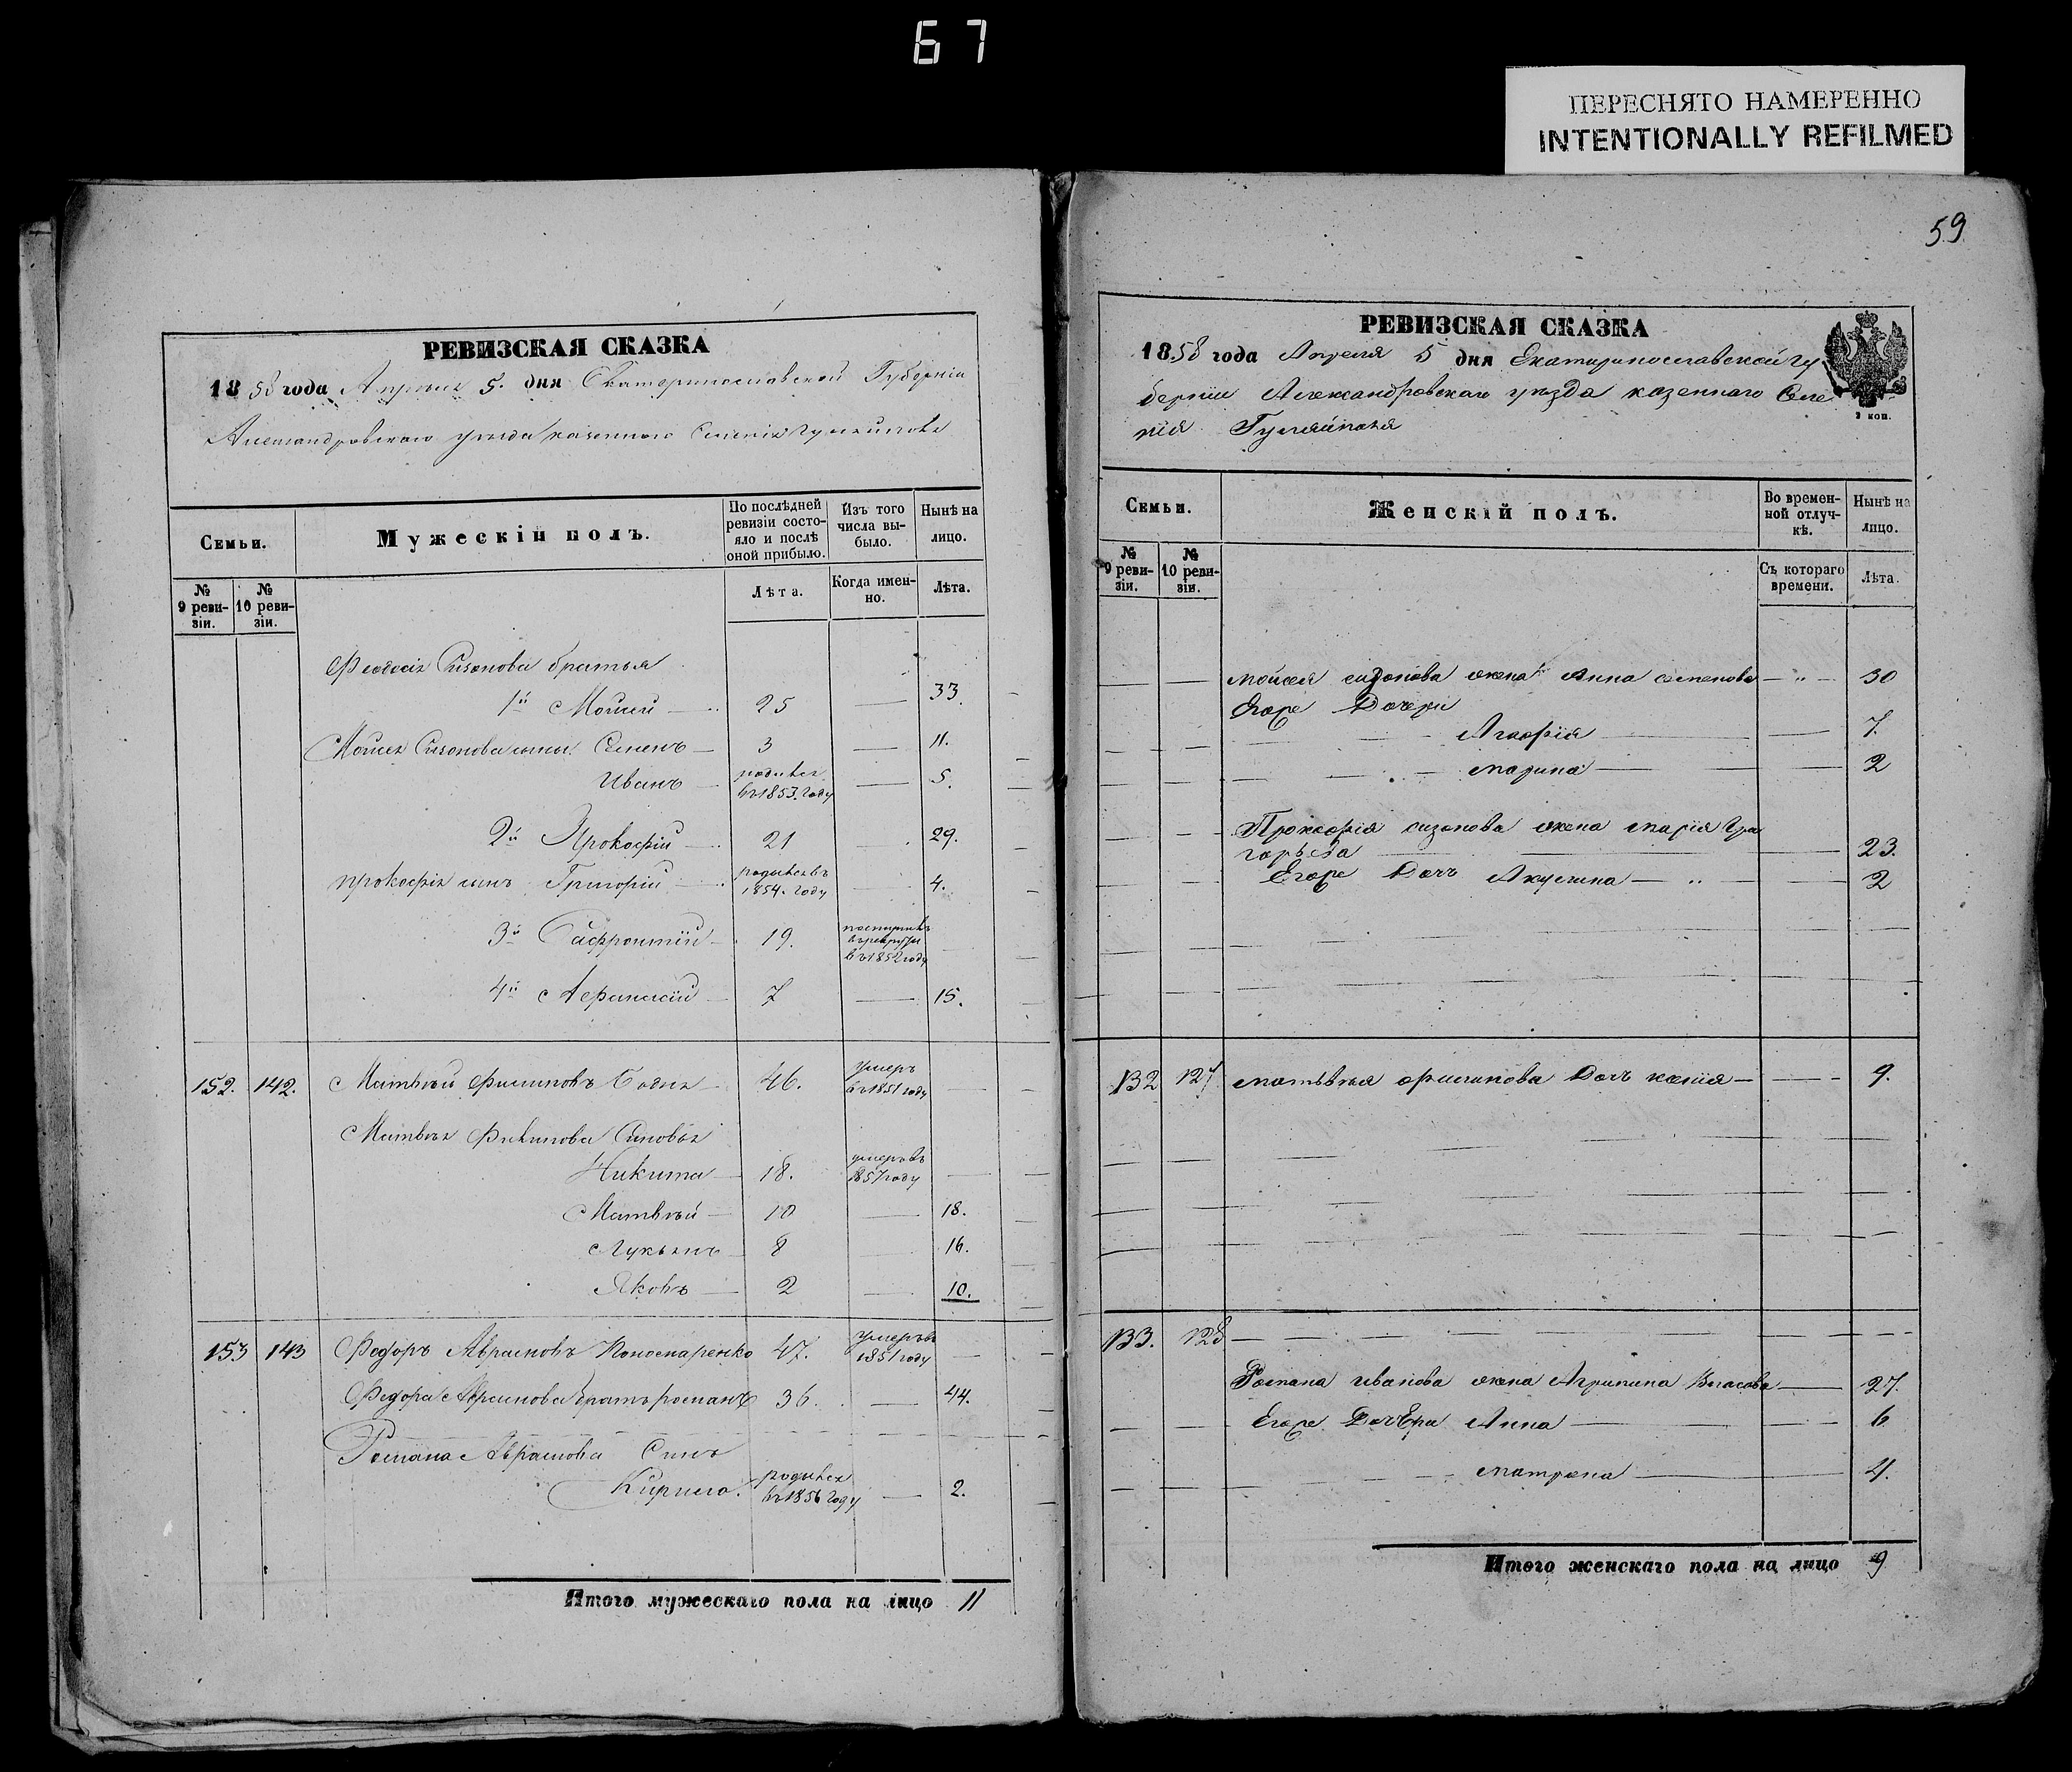 67
ПЕРЕСНЯТО НАМЕРЕННО
INTENTIONALLY REFILMED
РЕВИЗСКАЯ СКАЗКА
1858 года Апреля 5. дня Екатеринославской Губерніи
Александровскаго уезда казенного Селенія Гуляйполя
Семьи.
Мужескій полъ.
По послѣдней ревизіи состояло и послѣ оной прибыло.
Изъ того числа выбыло.
Нынѣ на лицо.
№ 9 ревизіи.
№ 10 ревизіи.
Лѣта.
Когда именно.
Лѣта.
Феодосія Сизонова братья
1й Мойсей 25 33.
Мойсея Сизонова сыны Семенъ 3 11.
Иванъ родился въ 1853. году 5.
2й Прокофій 21 29.
прокофія сынъ Григорій родился въ 1854. году 4.
3й 19. въ рекруты въ 1852 году
4й Афанасій 7 15.
152. 142. Матвѣй Филиповъ 46. умеръ въ 1851 году
Матвѣя Филипова Сыновья
Никита 18. умеръ въ 1857 году
Матвѣй 10 18.
Лукьянъ 8 16.
Яковъ 2 10.
153 143 Федоръ Аврамовъ Кономаренко 47. умеръ въ 1851 году
Федора Аврамова братъ романъ 36. 44.
Романа Аврамова Сынъ
Кирило. родился въ 1856 году 2.
Итого мужескаго пола на лицо 11
59
РЕВИЗСКАЯ СКАЗКА
1858 года Апреля 5 дня Екатеринославской Гу
берніи Александровскаго уѣзда казеннаго Селе
нія Гуляйполя
2 коп.
Семьи.
Женскій полъ.
Во временной отлучкѣ.
Нынѣ на лицо.
№ 9 ревизіи.
№ 10 ревизіи.
Съ котораго времени.
Лѣта.
Мойсея сизонова жена Анна семенова 30
Егоре Дочери
Агафія 7.
марина 2
Прокофія сизонова жена марія Гри
горьева 23.
Егоре Дочъ Акулина 2
132 127 матьвѣя филипова Дочъ ксенія 9.
133. 128
Романа иванова жена Агрипина Власова 27.
Егоре ДочЕри Анна 6
матрона 4.
Итого женскаго пола на лицо 9